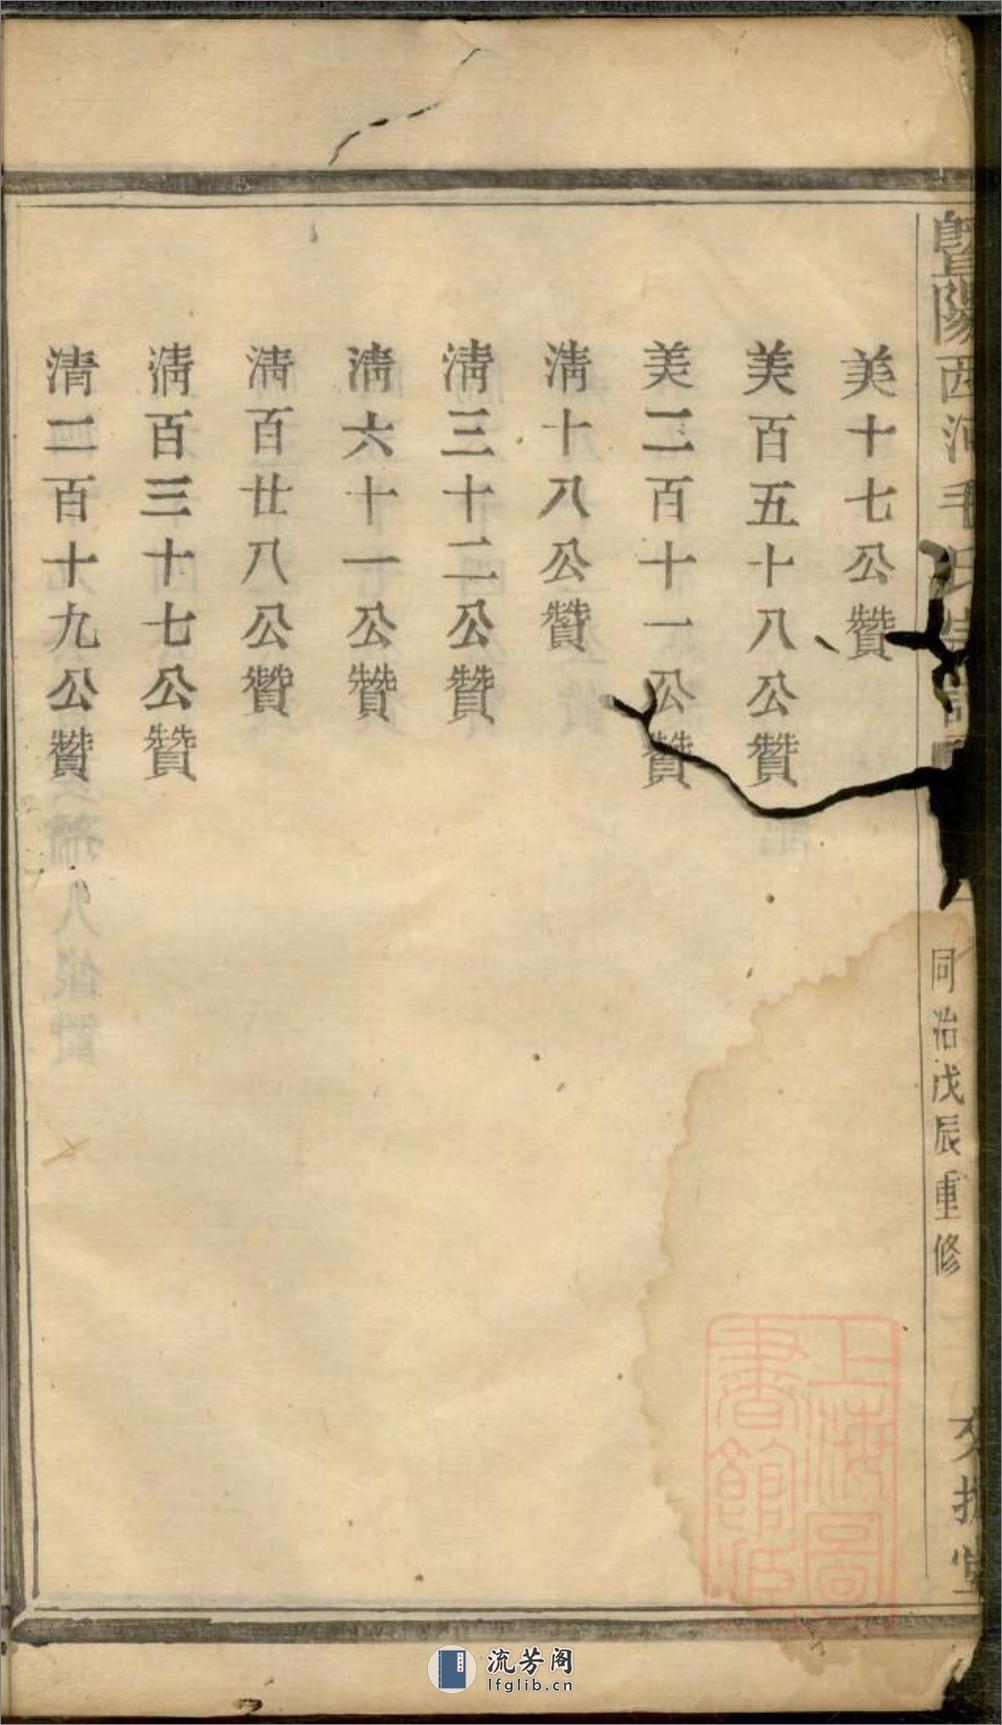 暨陽西河毛氏宗譜
同治戊辰重修
堂
美十七公贊
美百五十八公贊
美二百十一公贊
淸十八公贊
淸三十二公贊
淸六十一公贊
淸百廿八公贊
淸百三十七公贊
淸二百十九公贊
上海圖書館藏
流芳阁
lfglib.cn